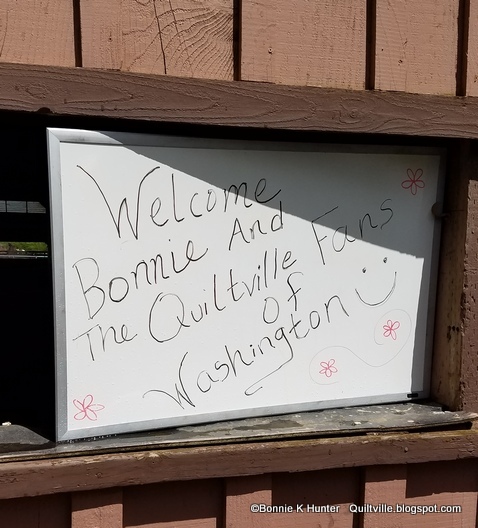 Welcome
Bonnie And
The Quiltville Fans
Of
Washington
©Bonnie K Hunter Quiltville.blogspot.com